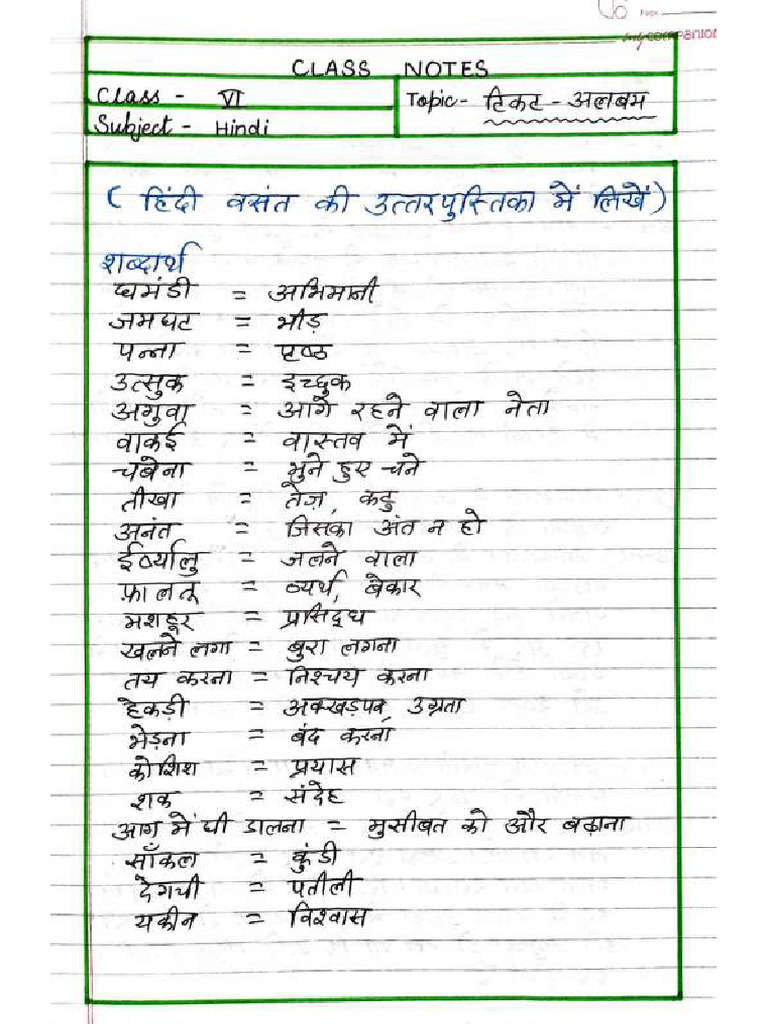 Page
CLASS NOTES
Class - VI
Topic - टिकट - अलबम
Subject - Hindi
( हिंदी वसंत की उत्तरपुस्तिका में लिखें )
शब्दार्थ
घमंडी = अभिमानी
जमघट = भीड़
पन्ना = पृष्ठ
उत्सुक = इच्छुक
अगुवा = आगे रहने वाला नेता
वाकई = वास्तव में
चबेना = भुने हुए चने
तीखा = तेज़, कटु
अनंत = जिसका अंत न हो
ईर्ष्यालु = जलने वाला
फ़ालतू = व्यर्थ, बेकार
मशहूर = प्रसिद्ध
खलने लगा = बुरा लगना
तय करना = निश्चय करना
हेकड़ी = अक्खड़पन, उग्रता
भेड़ना = बंद करना
कोशिश = प्रयास
शक = संदेह
आग में घी डालना = मुसीबत को और बढ़ाना
साँकल = कुंडी
देगची = पतीली
यकीन = विश्वास